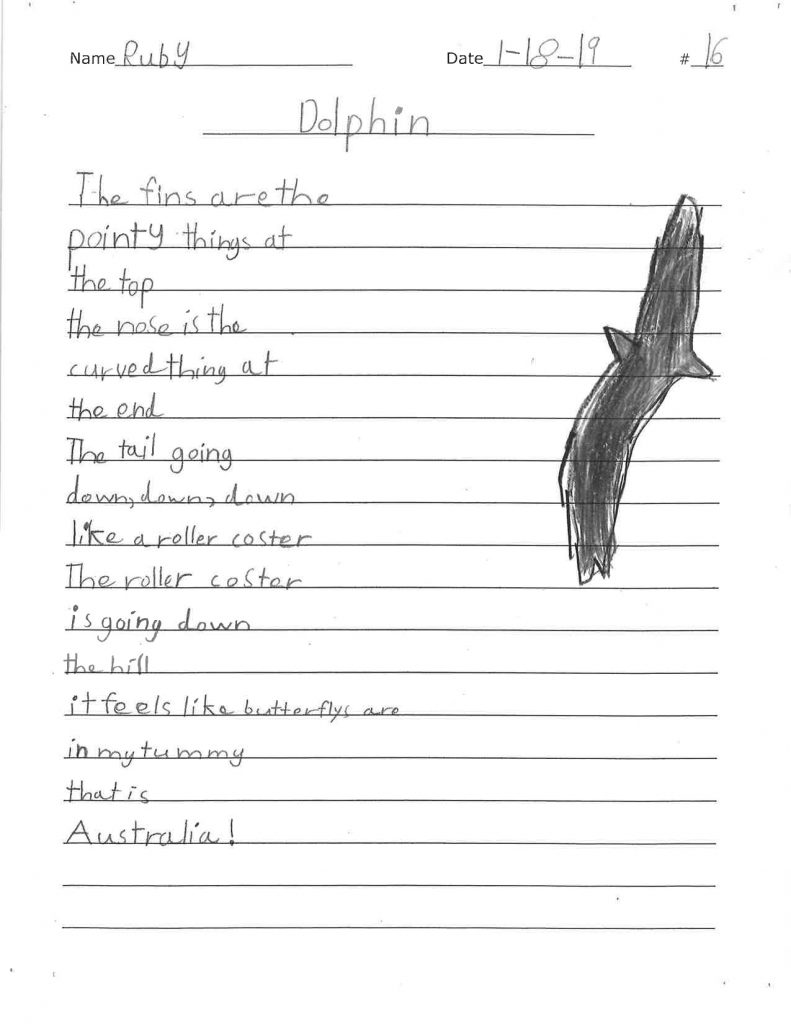 Name Ruby Date 1-18-19 # 16
Dolphin
The fins are the
pointy things at
the top
the nose is the
curved thing at
the end
The tail going
down, down, down
like a roller coster
The roller coster
is going down
the hill
it feels like butterflys are
in my tummy
that is
Australia!